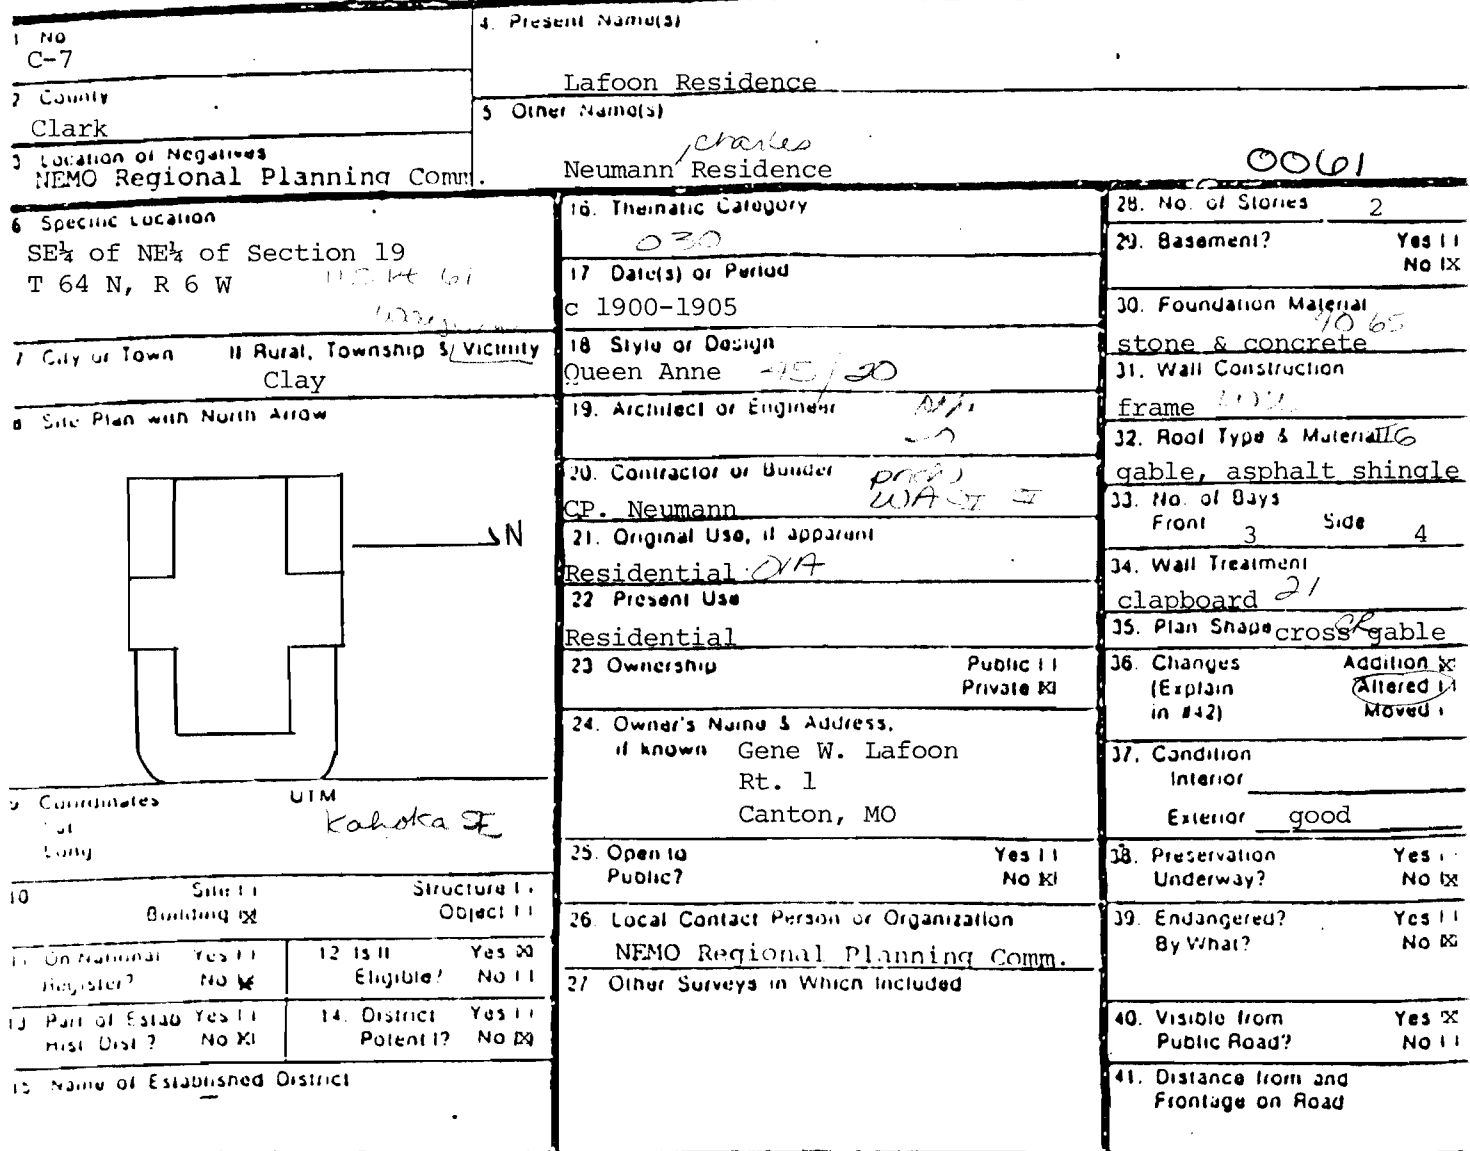 1 No
C-7
2 County
Clark
3 Location of Negatives
NEMO Regional Planning Comm.
4. Present Name(s)
Lafoon Residence
5 Other Name(s)
Neumann, Charles Residence
0061
6 Specific Location
SE¼ of NE¼ of Section 19
T 64 N, R 6 W
US Rt 61
7 City or Town If Rural, Township & Vicinity
Clay
8 Site Plan with North Arrow
N
9 Coordinates UTM
Lat
Long
Kahoka SE
10 Site [ ] Structure [ ]
Building [X] Object [ ]
11 On National Register? Yes [ ] No [X]
12 Is It Eligible? Yes [X] No [ ]
13 Part of Estab Hist Dist? Yes [ ] No [X]
14. District Potent'l? Yes [ ] No [X]
15 Name of Established District
16. Thematic Category
030
17 Date(s) or Period
c 1900-1905
18 Style or Design
Queen Anne 45/20
19. Architect or Engineer
20. Contractor or Builder
CP. Neumann
21. Original Use, if apparent
Residential 01A
22 Present Use
Residential
23 Ownership Public [ ]
Private [X]
24. Owner's Name & Address,
if known Gene W. Lafoon
Rt. 1
Canton, MO
25. Open to Yes [ ]
Public? No [X]
26. Local Contact Person or Organization
NEMO Regional Planning Comm.
27 Other Surveys in Which Included
28. No. of Stories 2
29. Basement? Yes [ ]
No [X]
30. Foundation Material
40 65
stone & concrete
31. Wall Construction
frame
32. Roof Type & Material
gable, asphalt shingle
33. No. of Bays
Front 3 Side 4
34. Wall Treatment
clapboard 21
35. Plan Shape cross gable CR
36. Changes Addition [X]
(Explain Altered [ ]
in #42) Moved [ ]
37. Condition
Interior
Exterior good
38. Preservation Yes [ ]
Underway? No [X]
39. Endangered? Yes [ ]
By What? No [X]
40. Visible from Yes [X]
Public Road? No [ ]
41. Distance from and
Frontage on Road